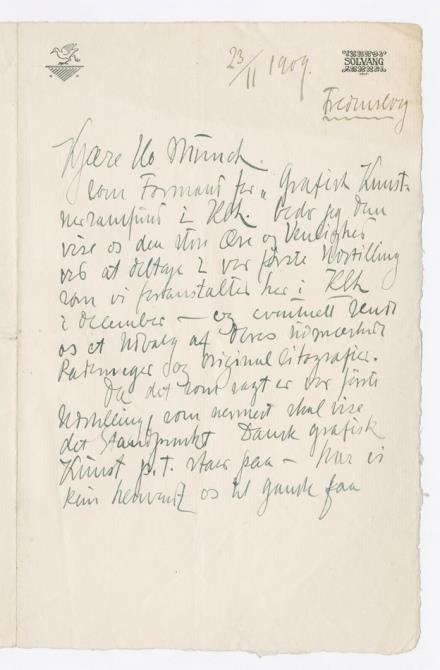 23/11 1909.
SOLVANG
Fredensborg
Kjære Hr Munch.
Som Formand for "Grafisk Kunst-
nersamfund i Kbh. beder jeg Dem
vise os den store Ære og Venlighed
ved at deltage i vor første Udstilling
som vi foranstalter her i Kbh
i December — og eventuelt sende
os et Udvalg af Deres udmærkede
Raderinger og Original litografier.
Da det som sagt er vor første
Udstilling, som nærmest skal vise
det Standpunkt Dansk grafisk
Kunst p.t. staar paa — har vi
kun henvendt os til ganske faa